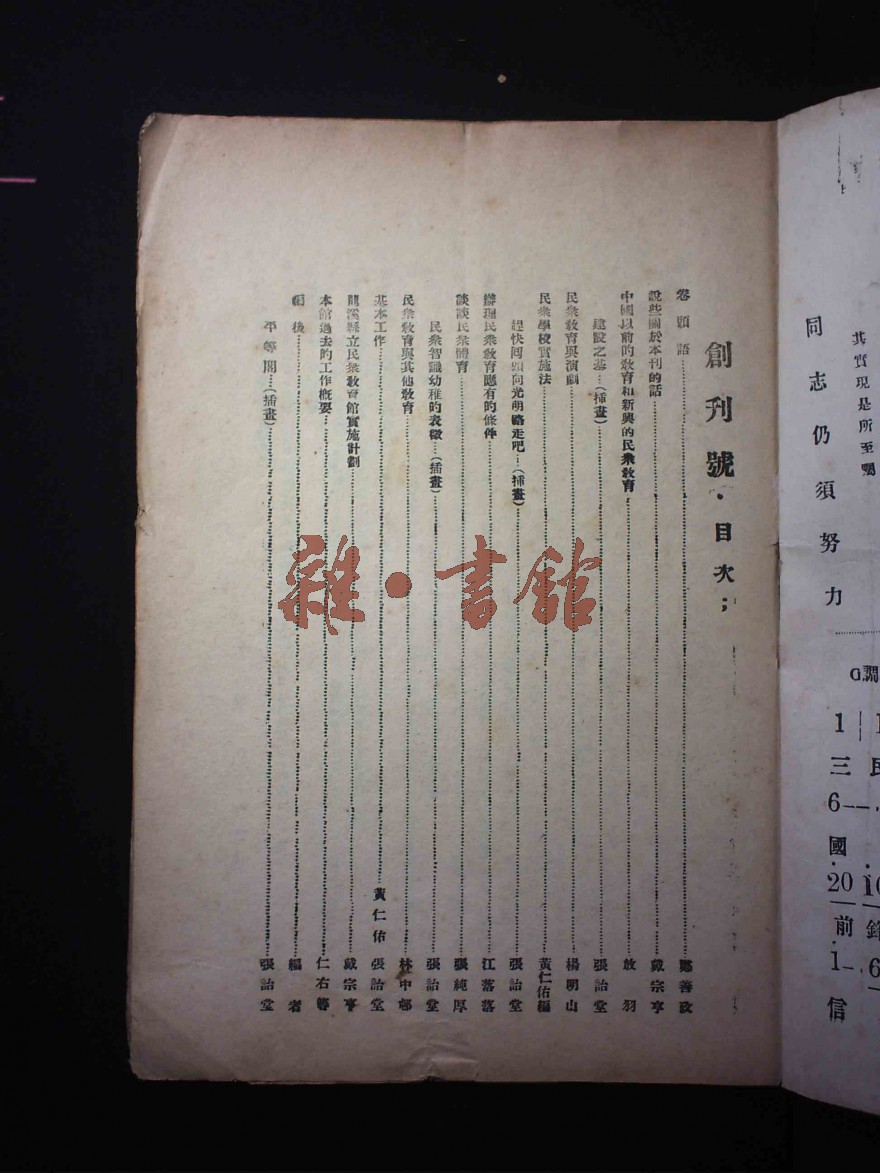 創刊號・目次；
卷頭語…………鄭善政
說些關於本刊的話…………戴宗亭
中國以前的敎育和新興的民衆敎育…………放羽
建設之基…(插畫)…………張詒堂
民衆敎育與演劇…………楊明山
民衆學校實施法…………黃仁佑編
趕快囘頭向光明路走吧…(插畫)…………張詒堂
辦理民衆敎育應有的條件…………江落落
談談民衆體育…………張純厚
民衆智識幼稚的表徵…(插畫)…………張詒堂
民衆敎育與其他敎育…………林中郁
基本工作…………黃仁佑 張詒堂
龍溪縣立民衆敎育館實施計劃…………戴宗亭
本館過去的工作槪要…………仁右等
編後…………編者
平等閣…(插畫)…………張詒堂
雜・書館
其實現是所至囑
同志仍須努力
G調
1 | 1
三 民
6—
國
20 10
前 鋒
1- 6
信